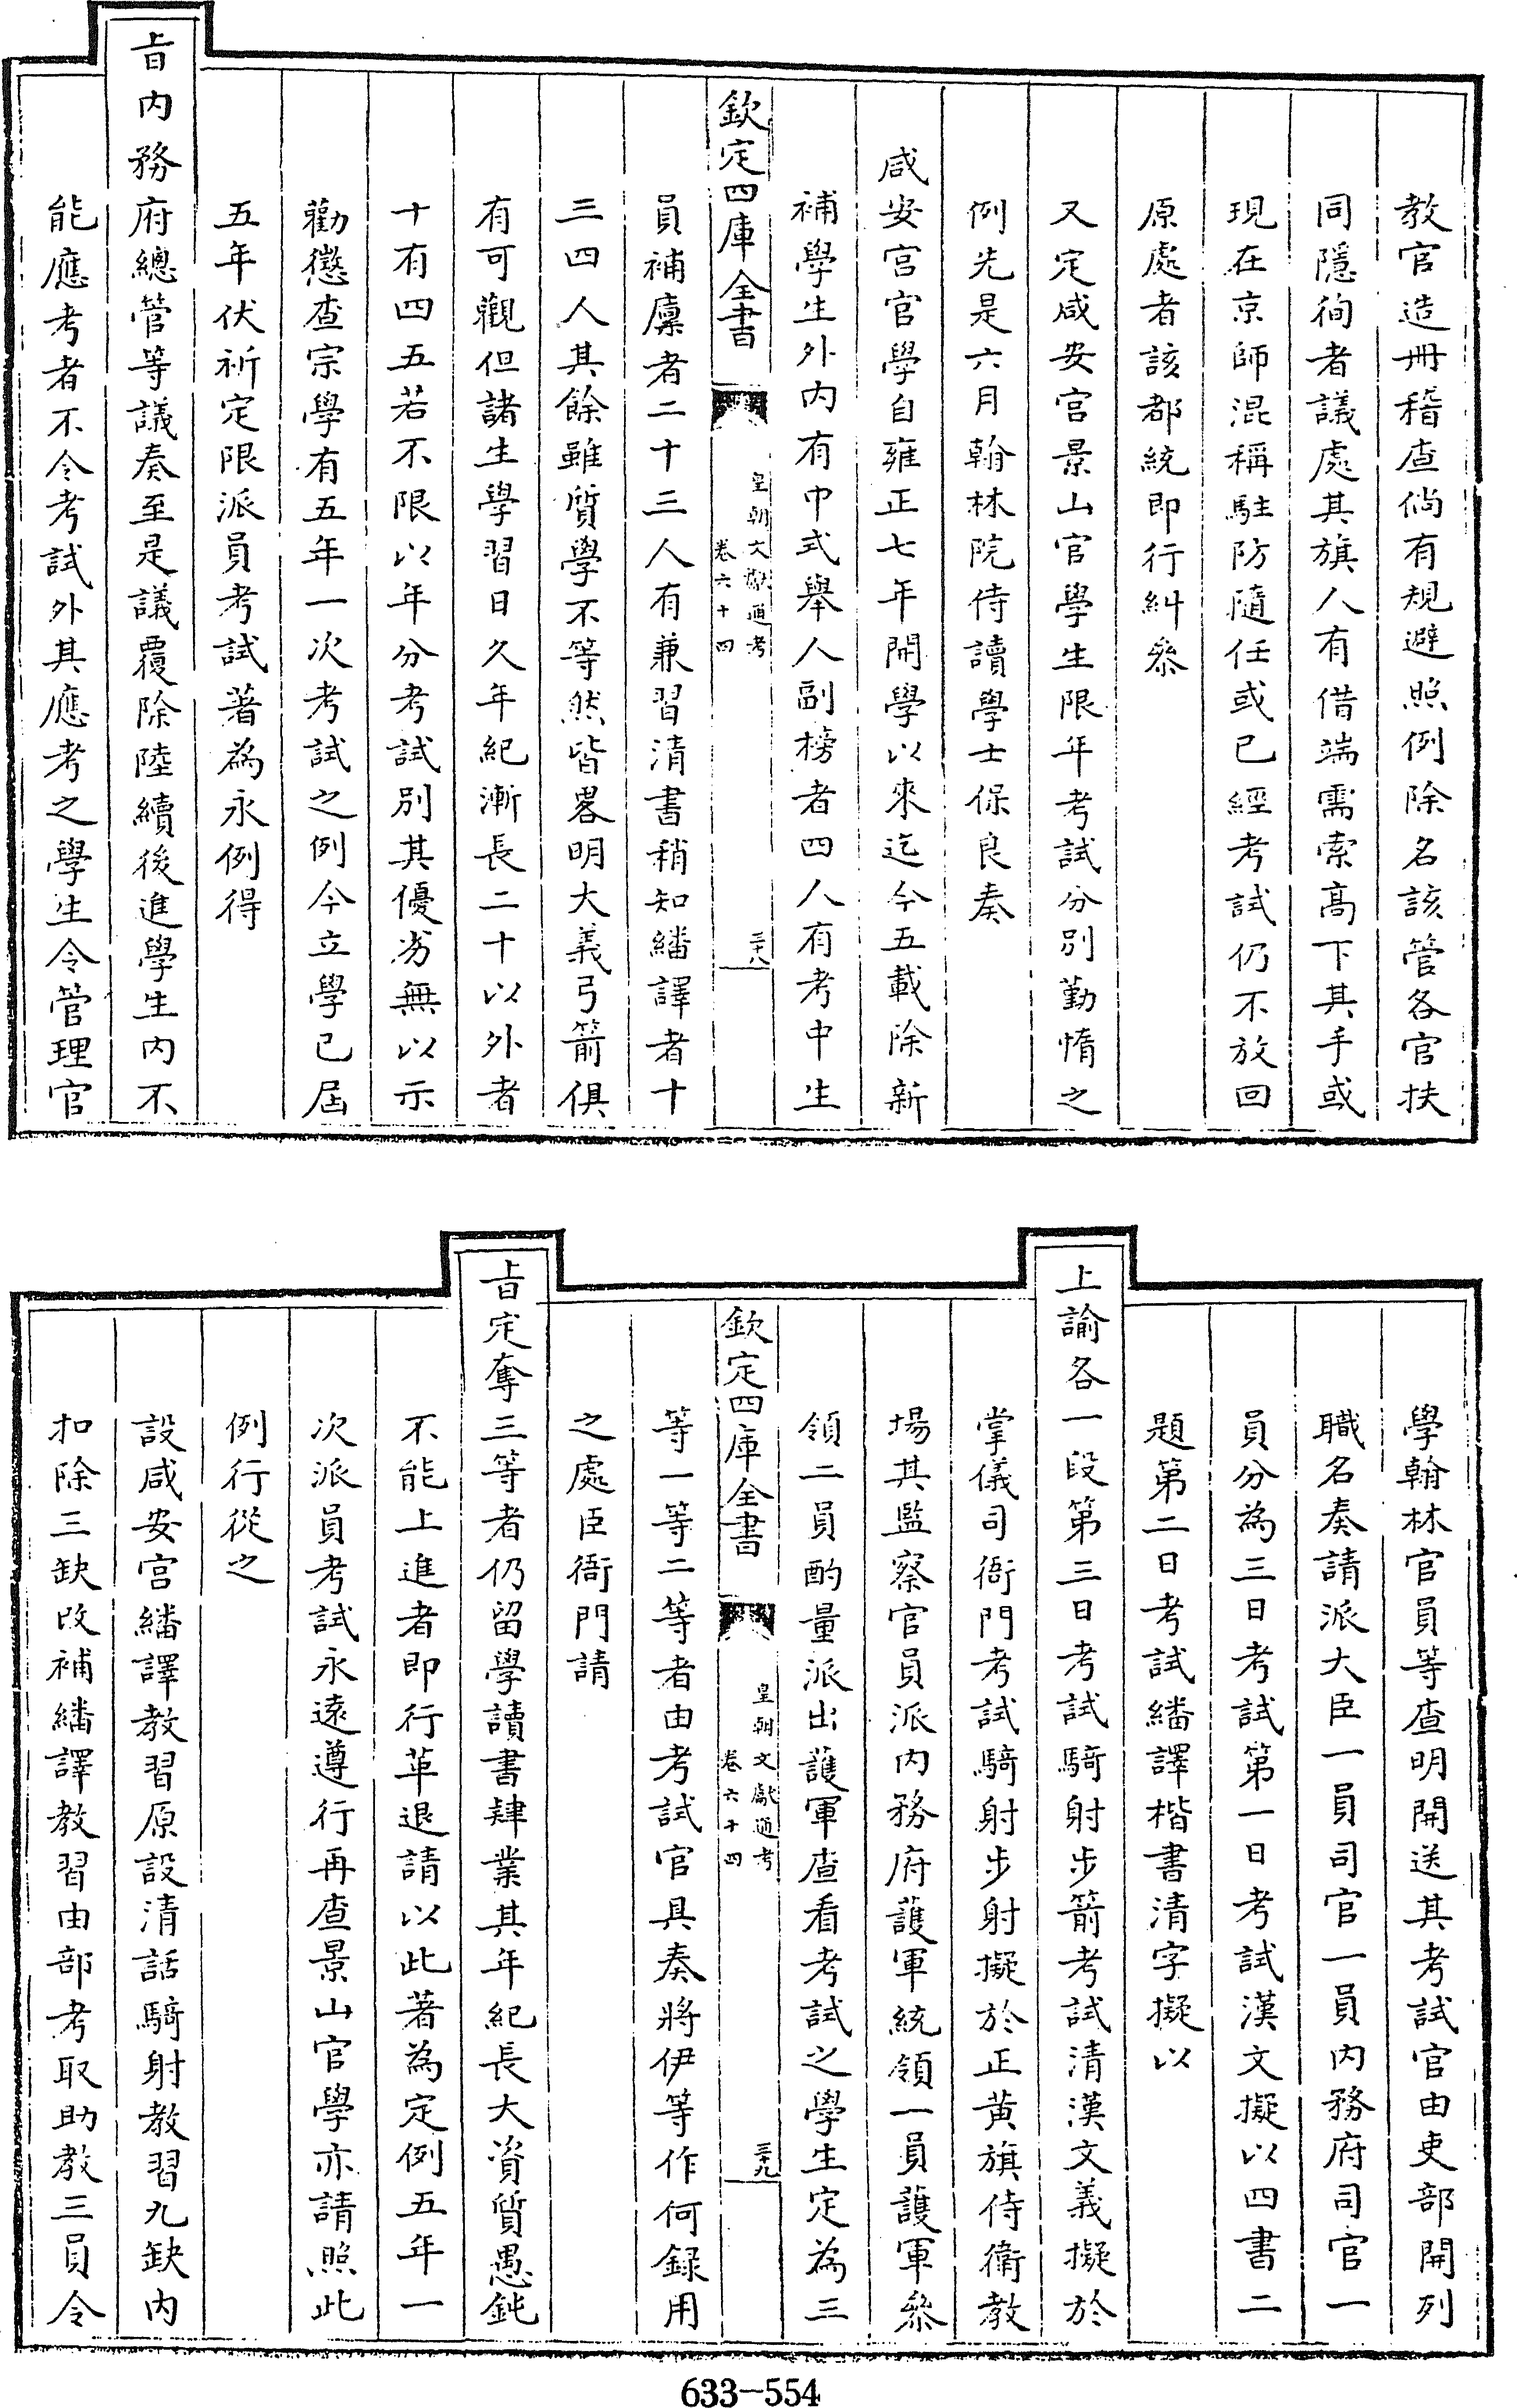 教官造冊稽查倘有規避照例除名該管各官扶
同隱徇者議處其旗人有借端需索高下其手或
現在京師混稱駐防隨任或已經考試仍不放回
原處者該都統即行糾叅
又定咸安宮景山官學生限年考試分別勤惰之
例先是六月翰林院侍讀學士保良奏
咸安宮官學自雍正七年開學以來迄今五載除新
補學生外內有中式舉人副榜者四人有考中生
欽定四庫全書
皇朝文獻通考
卷六十四
三十八
員補廩者二十三人有兼習清書稍知繙譯者十
三四人其餘雖質學不等然皆畧明大義弓箭俱
有可觀但諸生學習日久年紀漸長二十以外者
十有四五若不限以年分考試別其優劣無以示
勸懲查宗學有五年一次考試之例今立學已屆
五年伏祈定限派員考試著為永例得
旨內務府總管等議奏至是議覆除陸續後進學生內不
能應考者不令考試外其應考之學生令管理官
學翰林官員等查明開送其考試官由吏部開列
職名奏請派大臣一員司官一員內務府司官一
員分為三日考試第一日考試漢文擬以四書二
題第二日考試繙譯楷書清字擬以
上諭各一段第三日考試騎射步箭考試清漢文義擬於
掌儀司衙門考試騎射步射擬於正黃旗侍衛教
場其監察官員派內務府護軍統領一員護軍叅
領二員酌量派出護軍查看考試之學生定為三
欽定四庫全書
皇朝文獻通考
卷六十四
三十九
等一等二等者由考試官具奏將伊等作何録用
之處臣衙門請
旨定奪三等者仍留學讀書肄業其年紀長大資質愚鈍
不能上進者即行革退請以此著為定例五年一
次派員考試永遠遵行再查景山官學亦請照此
例行從之
設咸安宮繙譯教習原設清話騎射教習九缺內
扣除三缺改補繙譯教習由部考取助教三員令
633-554